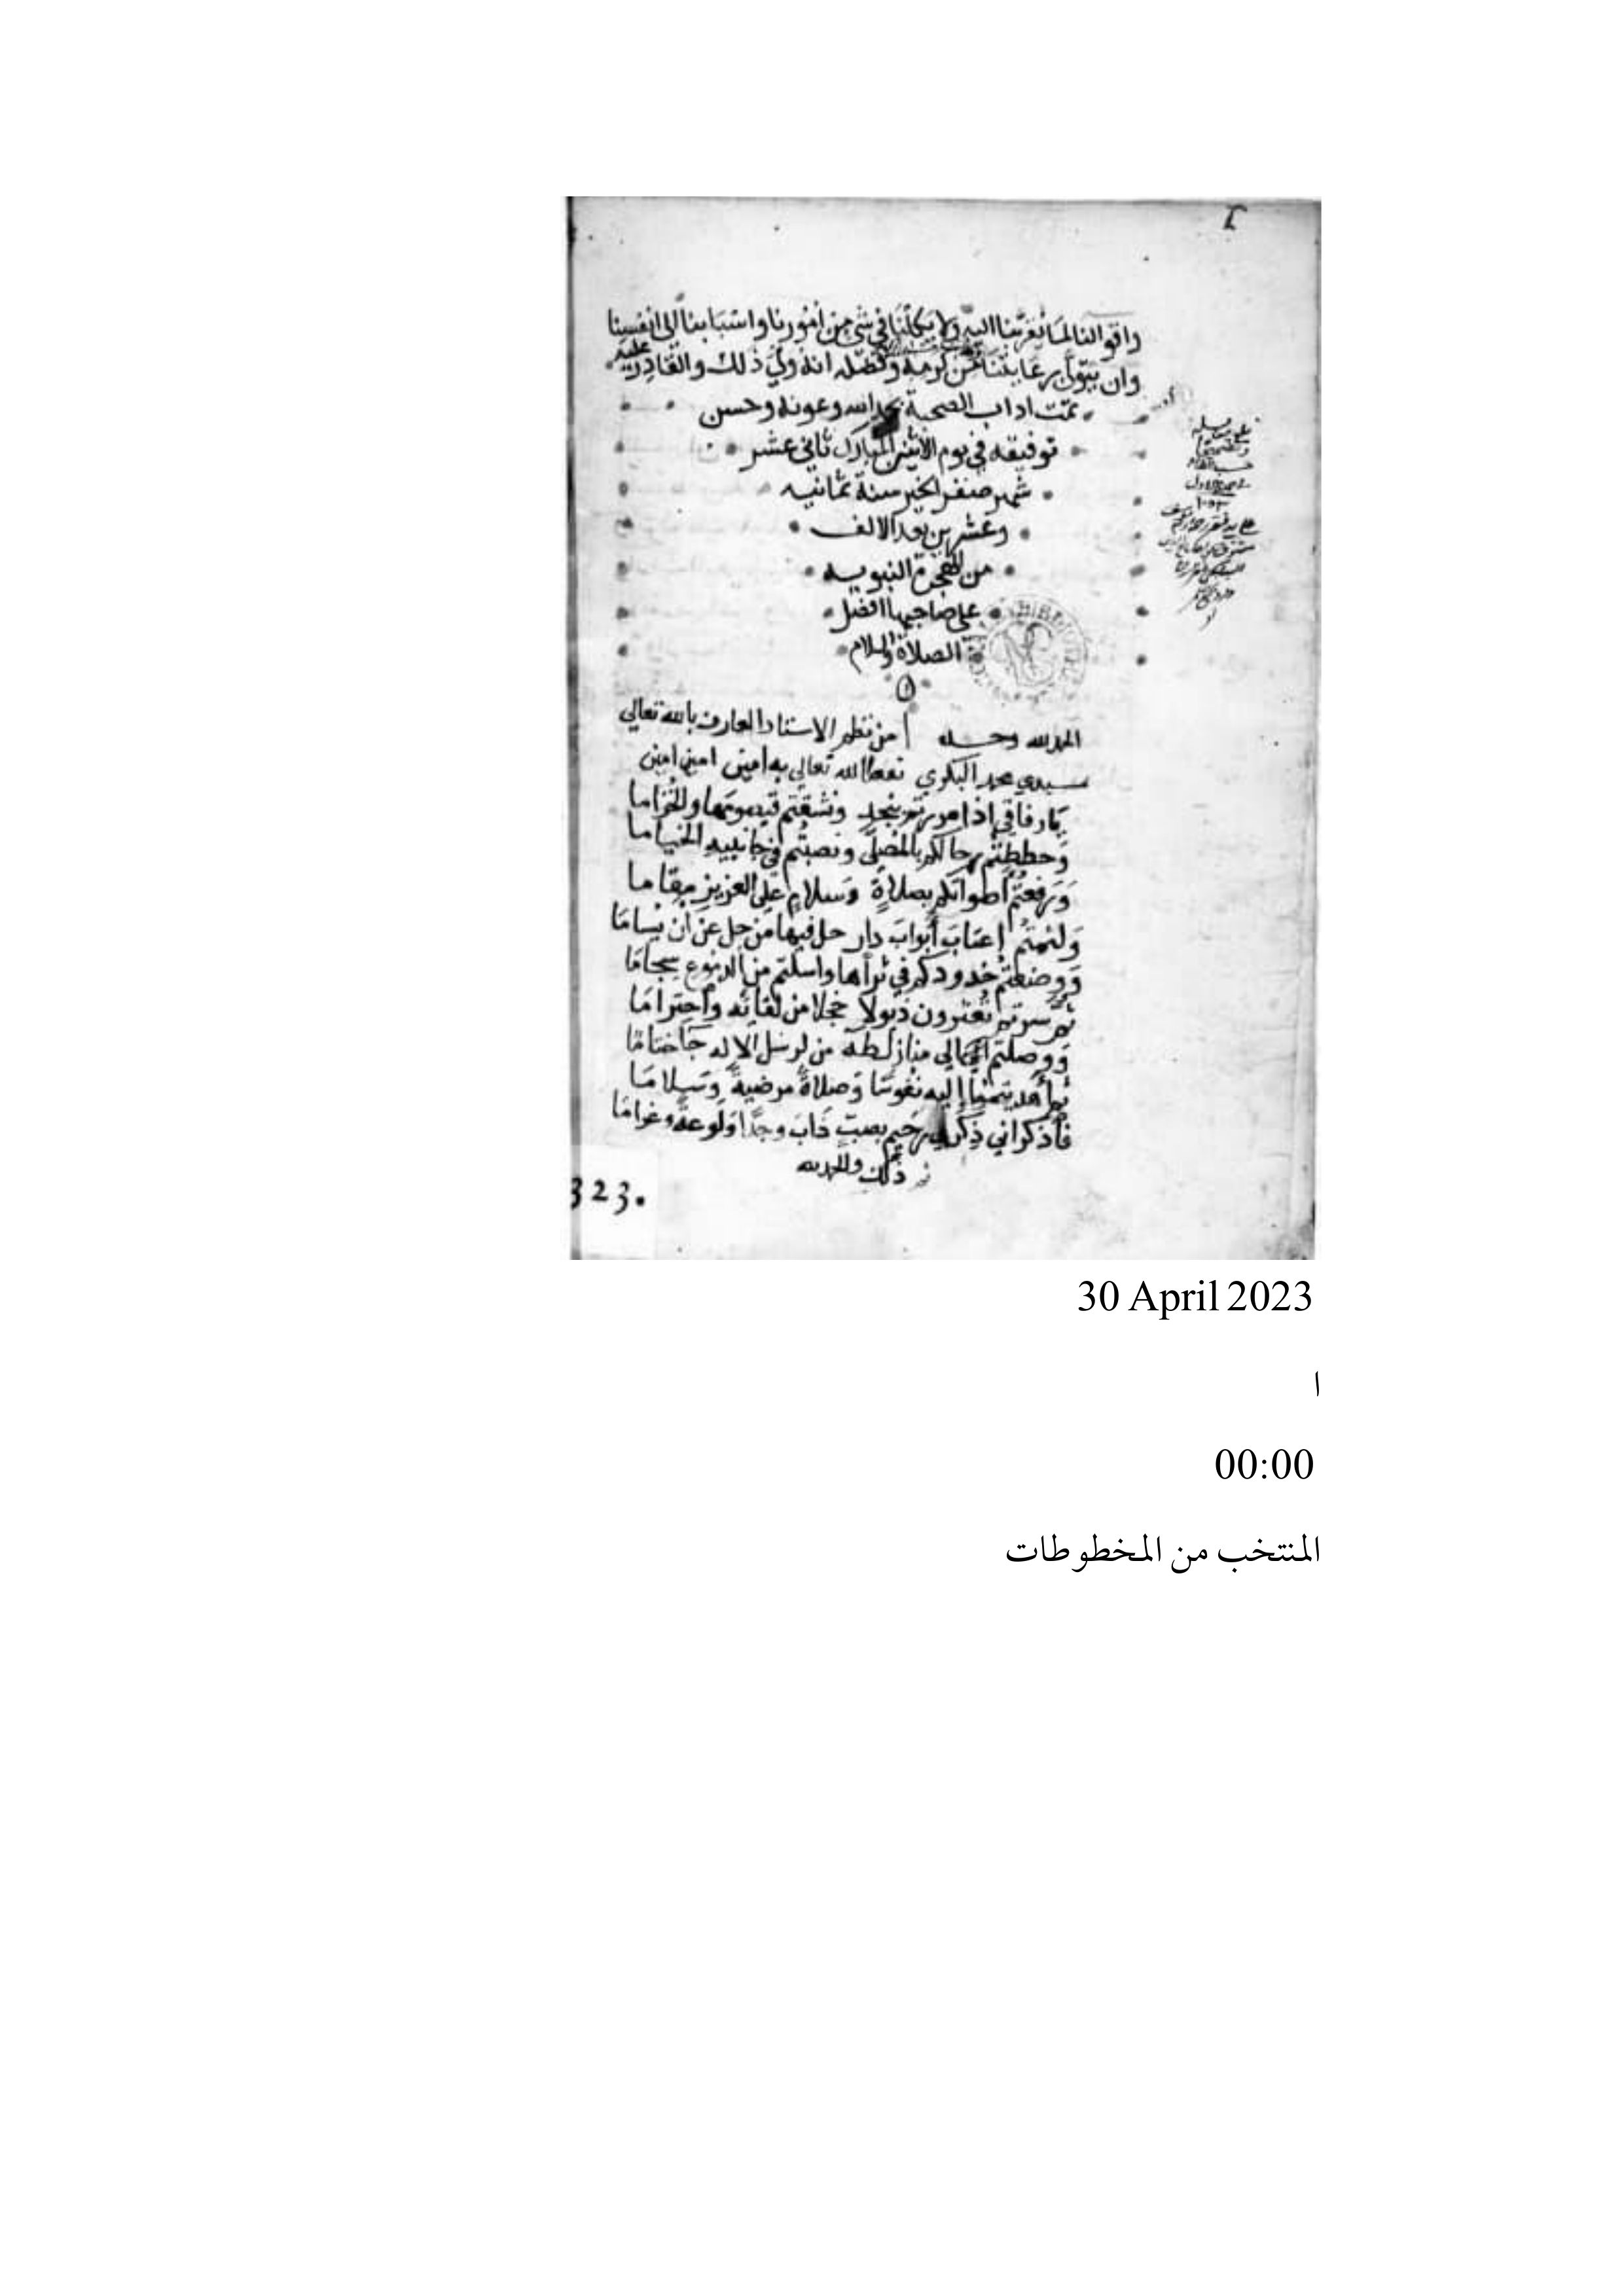 واقوالنا لما يقربنا اليه ولا يكلنا في شئ من امورنا واسبابنا الى انفسنا
وان يتولى رعايتنا من كرمه وفضله انه ولي ذلك والقادر عليه
تمت اداب الصحبة بحمد الله وعونه وحسن
توفيقه في يوم الاثنين المبارك ثاني عشر
شهر صفر الخير سنة ثمانيه
وعشرين بعد الالف
من الهجرة النبويه
على صاحبها افضل
الصلاة والسلام
الحمد لله وحده من نظم الاستاد العارف بالله تعالي
سيدي محمد البكري نفعنا الله تعالي به امين امين امين
يا رفاقي اذا مررتم بنجد ونشقتم قيصومها والخزاما
وَحططتم رحالكم بالمصلى ونصبتم في جانبيه الخياما
وَرفعتم اصواتكم بصلاةٍ وَسلامٍ على العزيز مقاما
وَلثمتم اعتابَ أبوابَ دار حل فيها من جل عن ان يسامَا
وَوضعتم خدودكم في ثراها واسلتم من الدموع سجامَا
ثم سرتم تعثرون ذيولا خجلا من لقائه واحترامَا
وَوصلتم الى منازل طه من لرسل الاله جَا ختامَا
اليه نفوسًا وَصلاةً مرضيةً وَسلامَا
فاذكراني ذكرى رحيم بصبٍّ ذابَ وجدًا وَلوعةً وغرامَا
تم ذلك والحمد لله
323.
30 April 2023
ا
00:00
المنتخب من المخطوطات